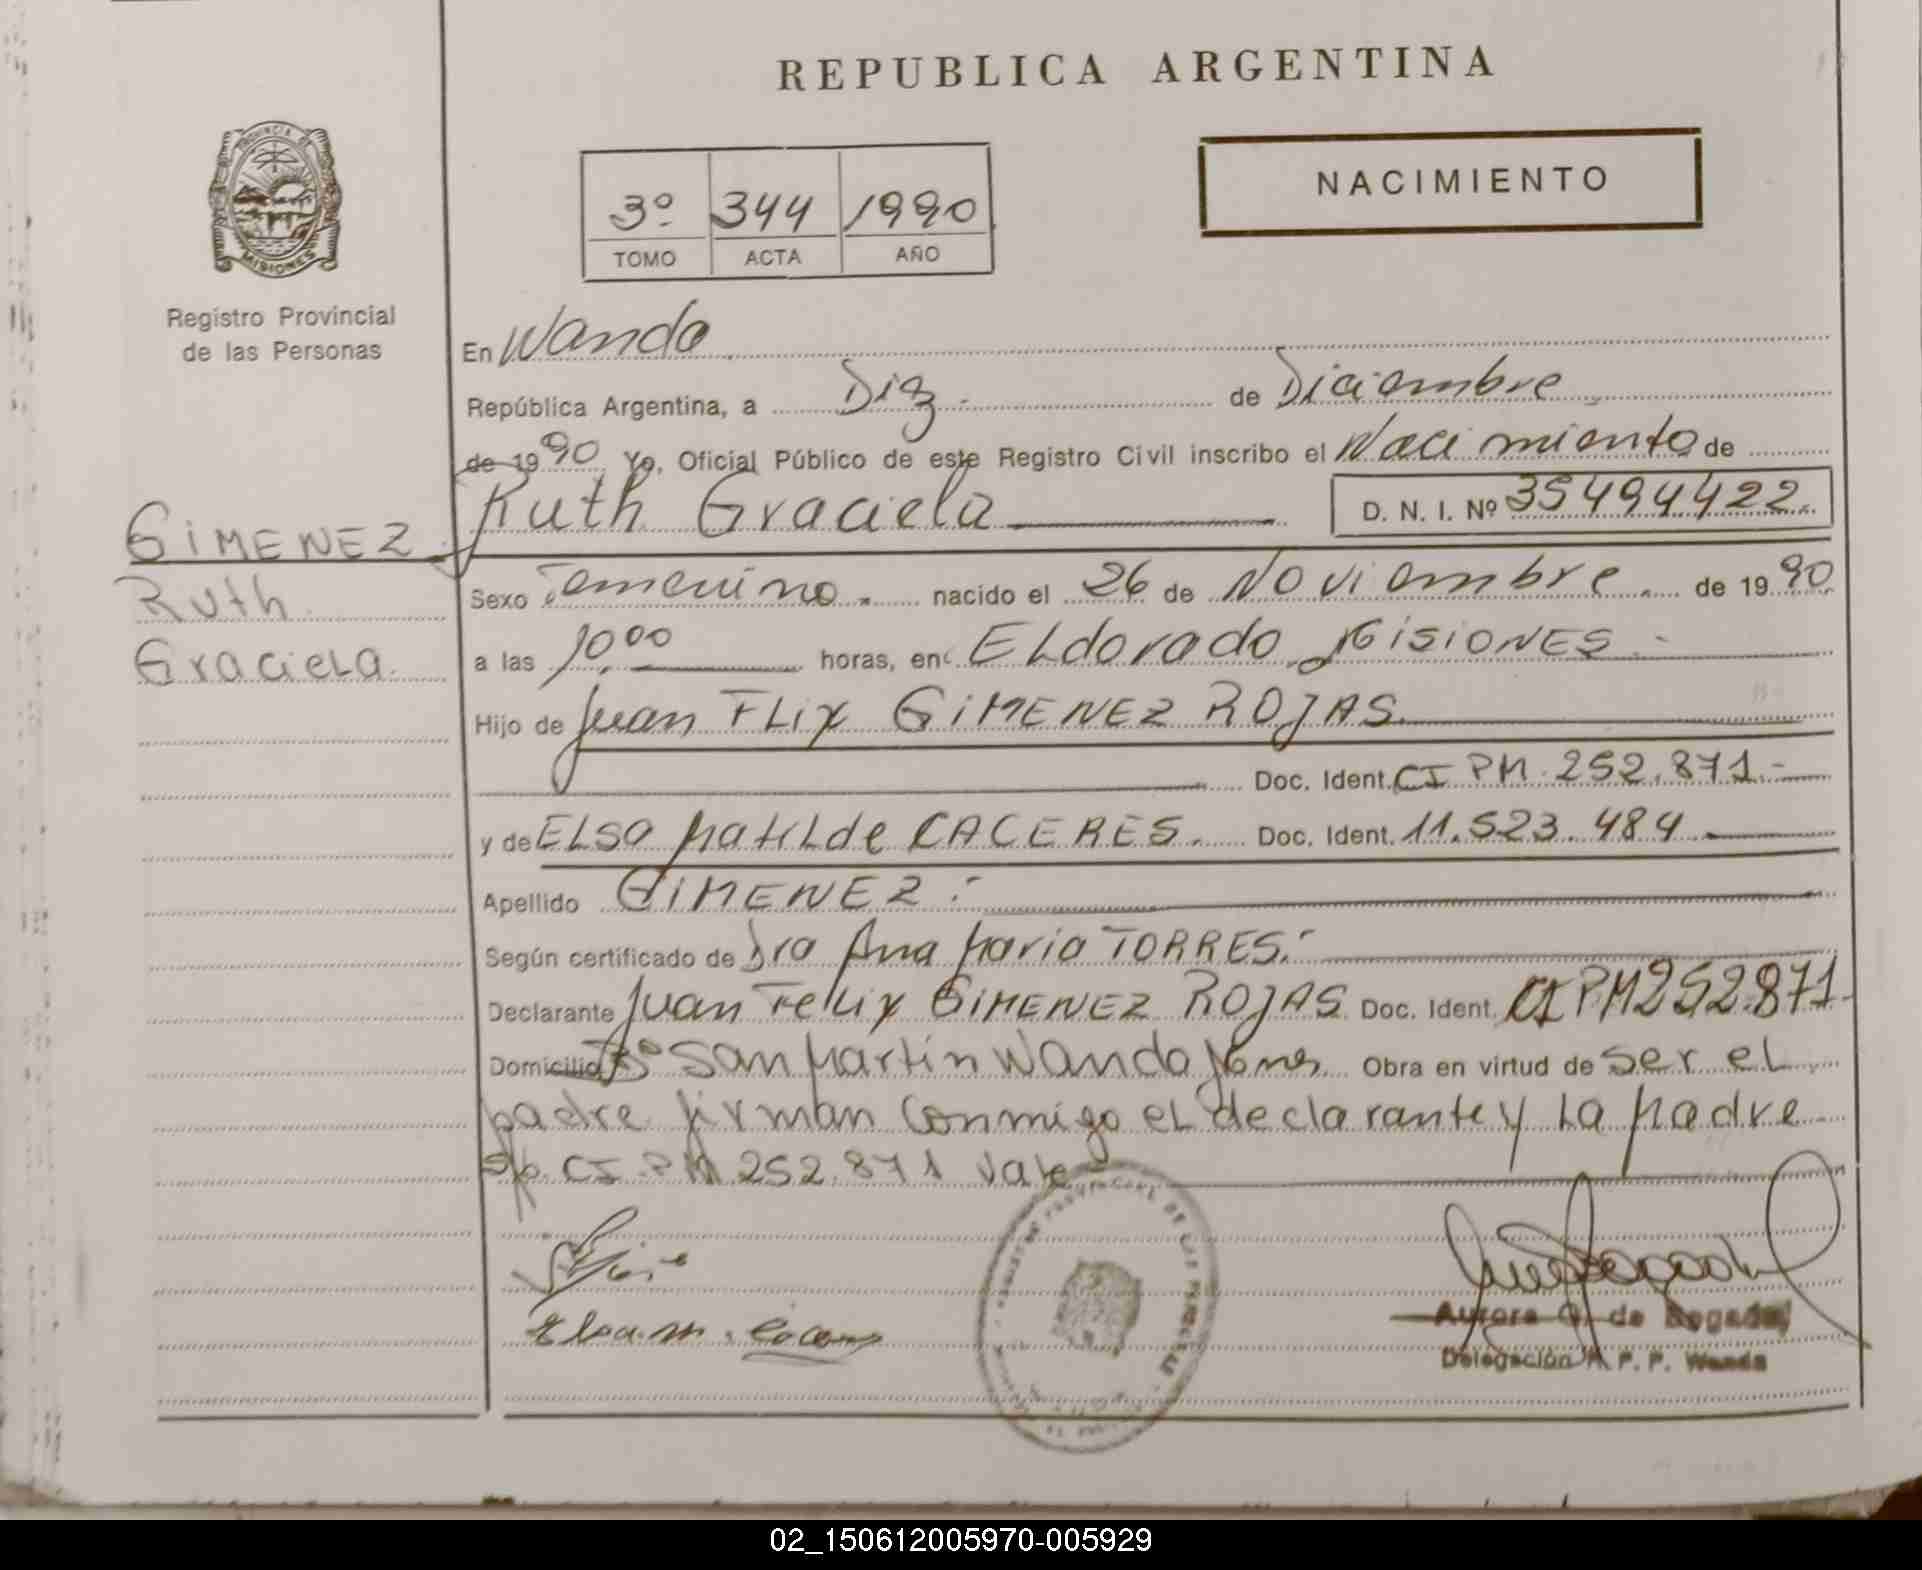 REPUBLICA ARGENTINA
PROVINCIA DE
MISIONES
Registro Provincial
de las Personas
3º 344 1990
TOMO ACTA AÑO
NACIMIENTO
En Wanda
República Argentina, a Diez de Diciembre
de 1990 Yo, Oficial Público de este Registro Civil inscribo el Nacimiento de
Ruth Graciela D. N. I. Nº 35494422.
GIMENEZ
Ruth
Graciela.
Sexo Femenino. nacido el 26 de Noviembre. de 1990
a las 10,00 horas, en ELdorado Misiones.-
Hijo de Juan FLix GIMENEZ ROJAS.
Doc. Ident. CI PM. 252.871.-
y de ELSA MatiLde CACERES. Doc. Ident. 11.523.484
Apellido GIMENEZ.-
Según certificado de Dra Ana Maria TORRES.-
Declarante Juan FeLix GIMENEZ ROJAS Doc. Ident. CI PM 252.871-
Domicilio Bº San Martin Wanda Mnes Obra en virtud de ser eL
padre firman conmigo eL declarante y La Madre
S/p. CI. PM 252.871 Vale
Elsa.m.
Aurora G. de Bogado
Delegación R. P. P. Wanda
02_150612005970-005929